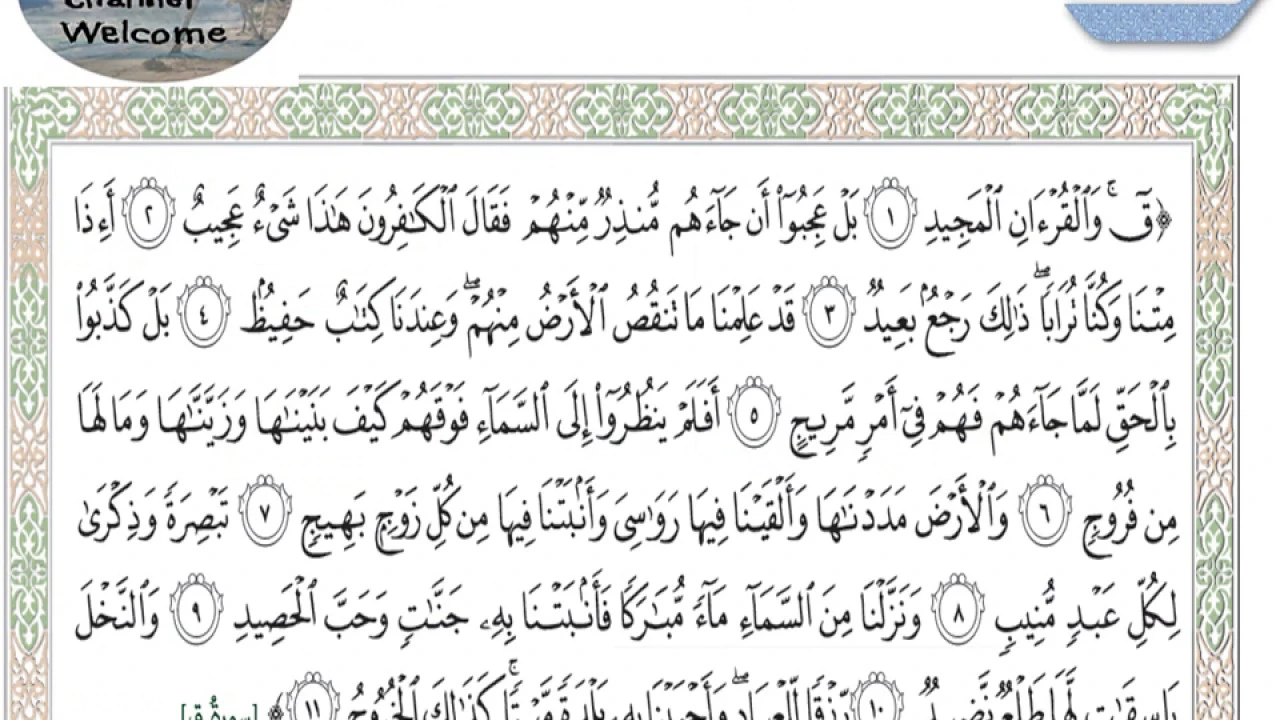 Channel
Welcome
﴿قٓۚ وَٱلْقُرْءَانِ ٱلْمَجِيدِ ١ بَلْ عَجِبُوٓا۟ أَن جَآءَهُم مُّنذِرٌ مِّنْهُمْ فَقَالَ ٱلْكَٰفِرُونَ هَٰذَا شَىْءٌ عَجِيبٌ ٢ أَءِذَا
مِتْنَا وَكُنَّا تُرَابًاۖ ذَٰلِكَ رَجْعٌۢ بَعِيدٌ ٣ قَدْ عَلِمْنَا مَا تَنقُصُ ٱلْأَرْضُ مِنْهُمْۖ وَعِندَنَا كِتَٰبٌ حَفِيظٌۢ ٤ بَلْ كَذَّبُوا۟
بِٱلْحَقِّ لَمَّا جَآءَهُمْ فَهُمْ فِىٓ أَمْرٍ مَّرِيجٍ ٥ أَفَلَمْ يَنظُرُوٓا۟ إِلَى ٱلسَّمَآءِ فَوْقَهُمْ كَيْفَ بَنَيْنَٰهَا وَزَيَّنَّٰهَا وَمَا لَهَا
مِن فُرُوجٍ ٦ وَٱلْأَرْضَ مَدَدْنَٰهَا وَأَلْقَيْنَا فِيهَا رَوَٰسِىَ وَأَنۢبَتْنَا فِيهَا مِن كُلِّ زَوْجٍۭ بَهِيجٍ ٧ تَبْصِرَةً وَذِكْرَىٰ
لِكُلِّ عَبْدٍ مُّنِيبٍ ٨ وَنَزَّلْنَا مِنَ ٱلسَّمَآءِ مَآءً مُّبَٰرَكًا فَأَنۢبَتْنَا بِهِۦ جَنَّٰتٍ وَحَبَّ ٱلْحَصِيدِ ٩ وَٱلنَّخْلَ
بَاسِقَٰتٍ لَّهَا طَلْعٌ نَّضِيدٌ ١٠ رِّزْقًا لِّلْعِبَادِۖ وَأَحْيَيْنَا بِهِۦ بَلْدَةً مَّيْتًاۚ كَذَٰلِكَ ٱلْخُرُوجُ ١١﴾ [سورة ق]